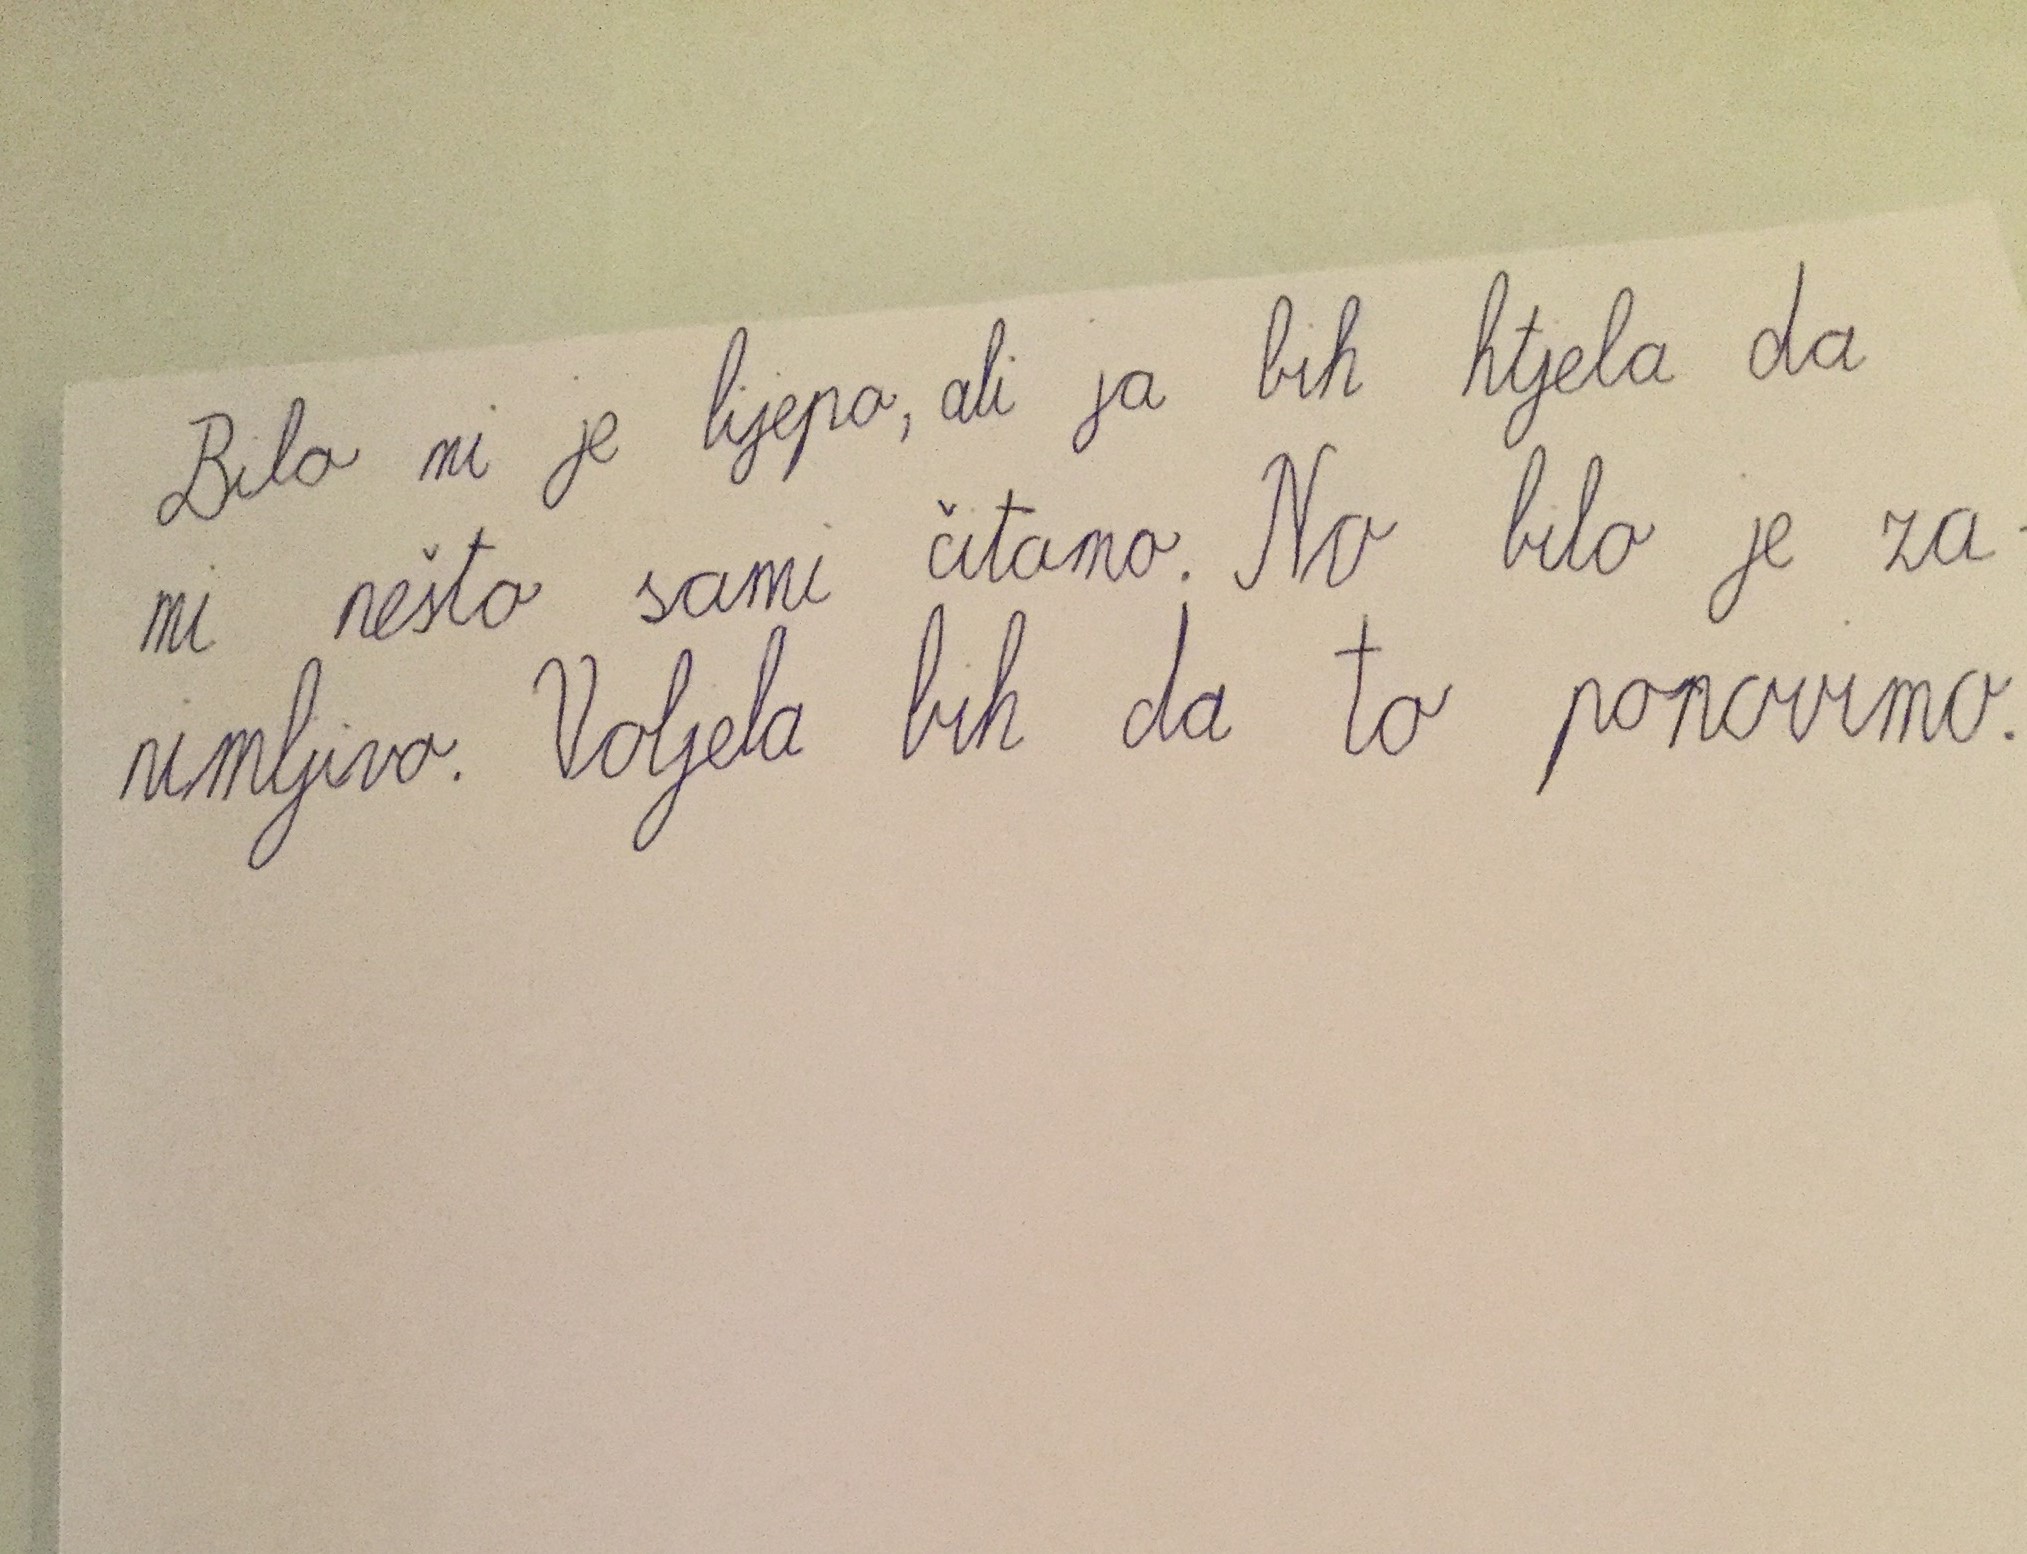 Bilo mi je lijepo, ali ja bih htjela da
mi nešto sami čitamo. No bilo je za-
nimljivo. Voljela bih da to ponovimo.